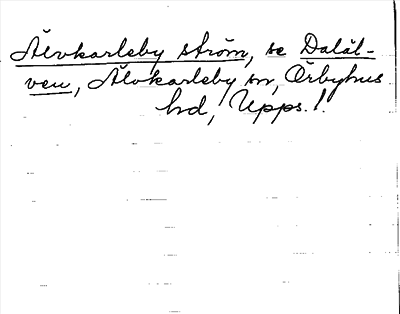 Älvkarleby ström, se Daläl-
ven, Älvkarleby sn, Örbyhus
hd, Upps. l.